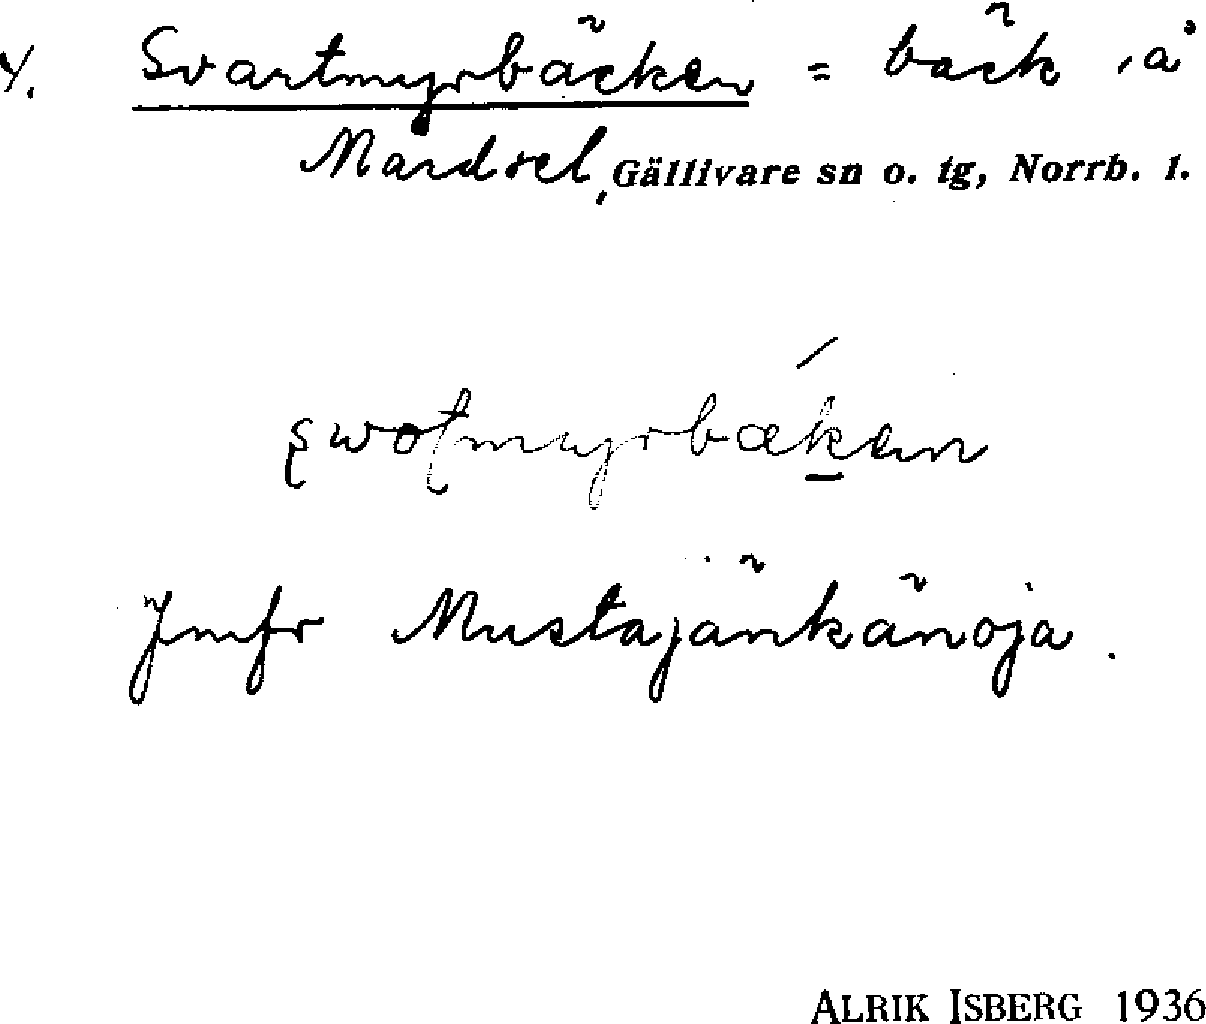 Y. Svartmyrbäcken = bäck, å
Mardsel, Gällivare sn o. tg, Norrb. l.
Jmfr Mustajänkänoja.
ALRIK ISBERG 1936